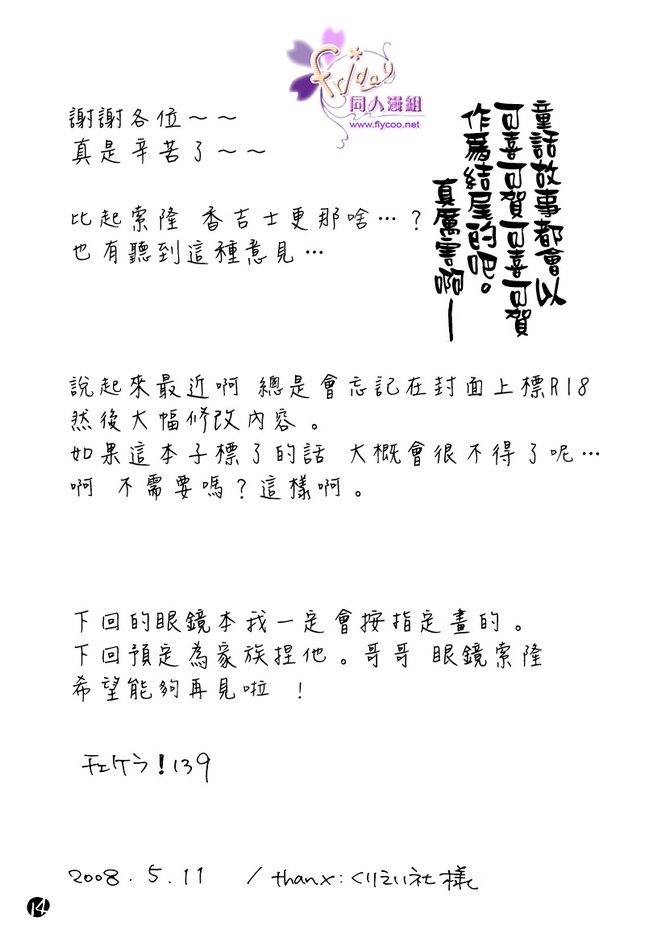 Friday
同人漫組
www.flycoo.net
童話故事都會以
可喜可賀可喜可賀
作爲結尾的吧。
真厲害啊—
謝謝各位～～
真是辛苦了～～
比起索隆 香吉士更那啥…？
也有聽到這種意見…
說起來最近啊 總是會忘記在封面上標R18
然後大幅修改內容。
如果這本子標了的話 大概會很不得了呢…
啊 不需要嗎？這樣啊。
下回的眼鏡本我一定會按指定畫的。
下回預定為家族捏他。哥哥 眼鏡索隆
希望能夠再見啦 !
チェケラ！139
2008.5.11 / thanx:くりえい社様
14